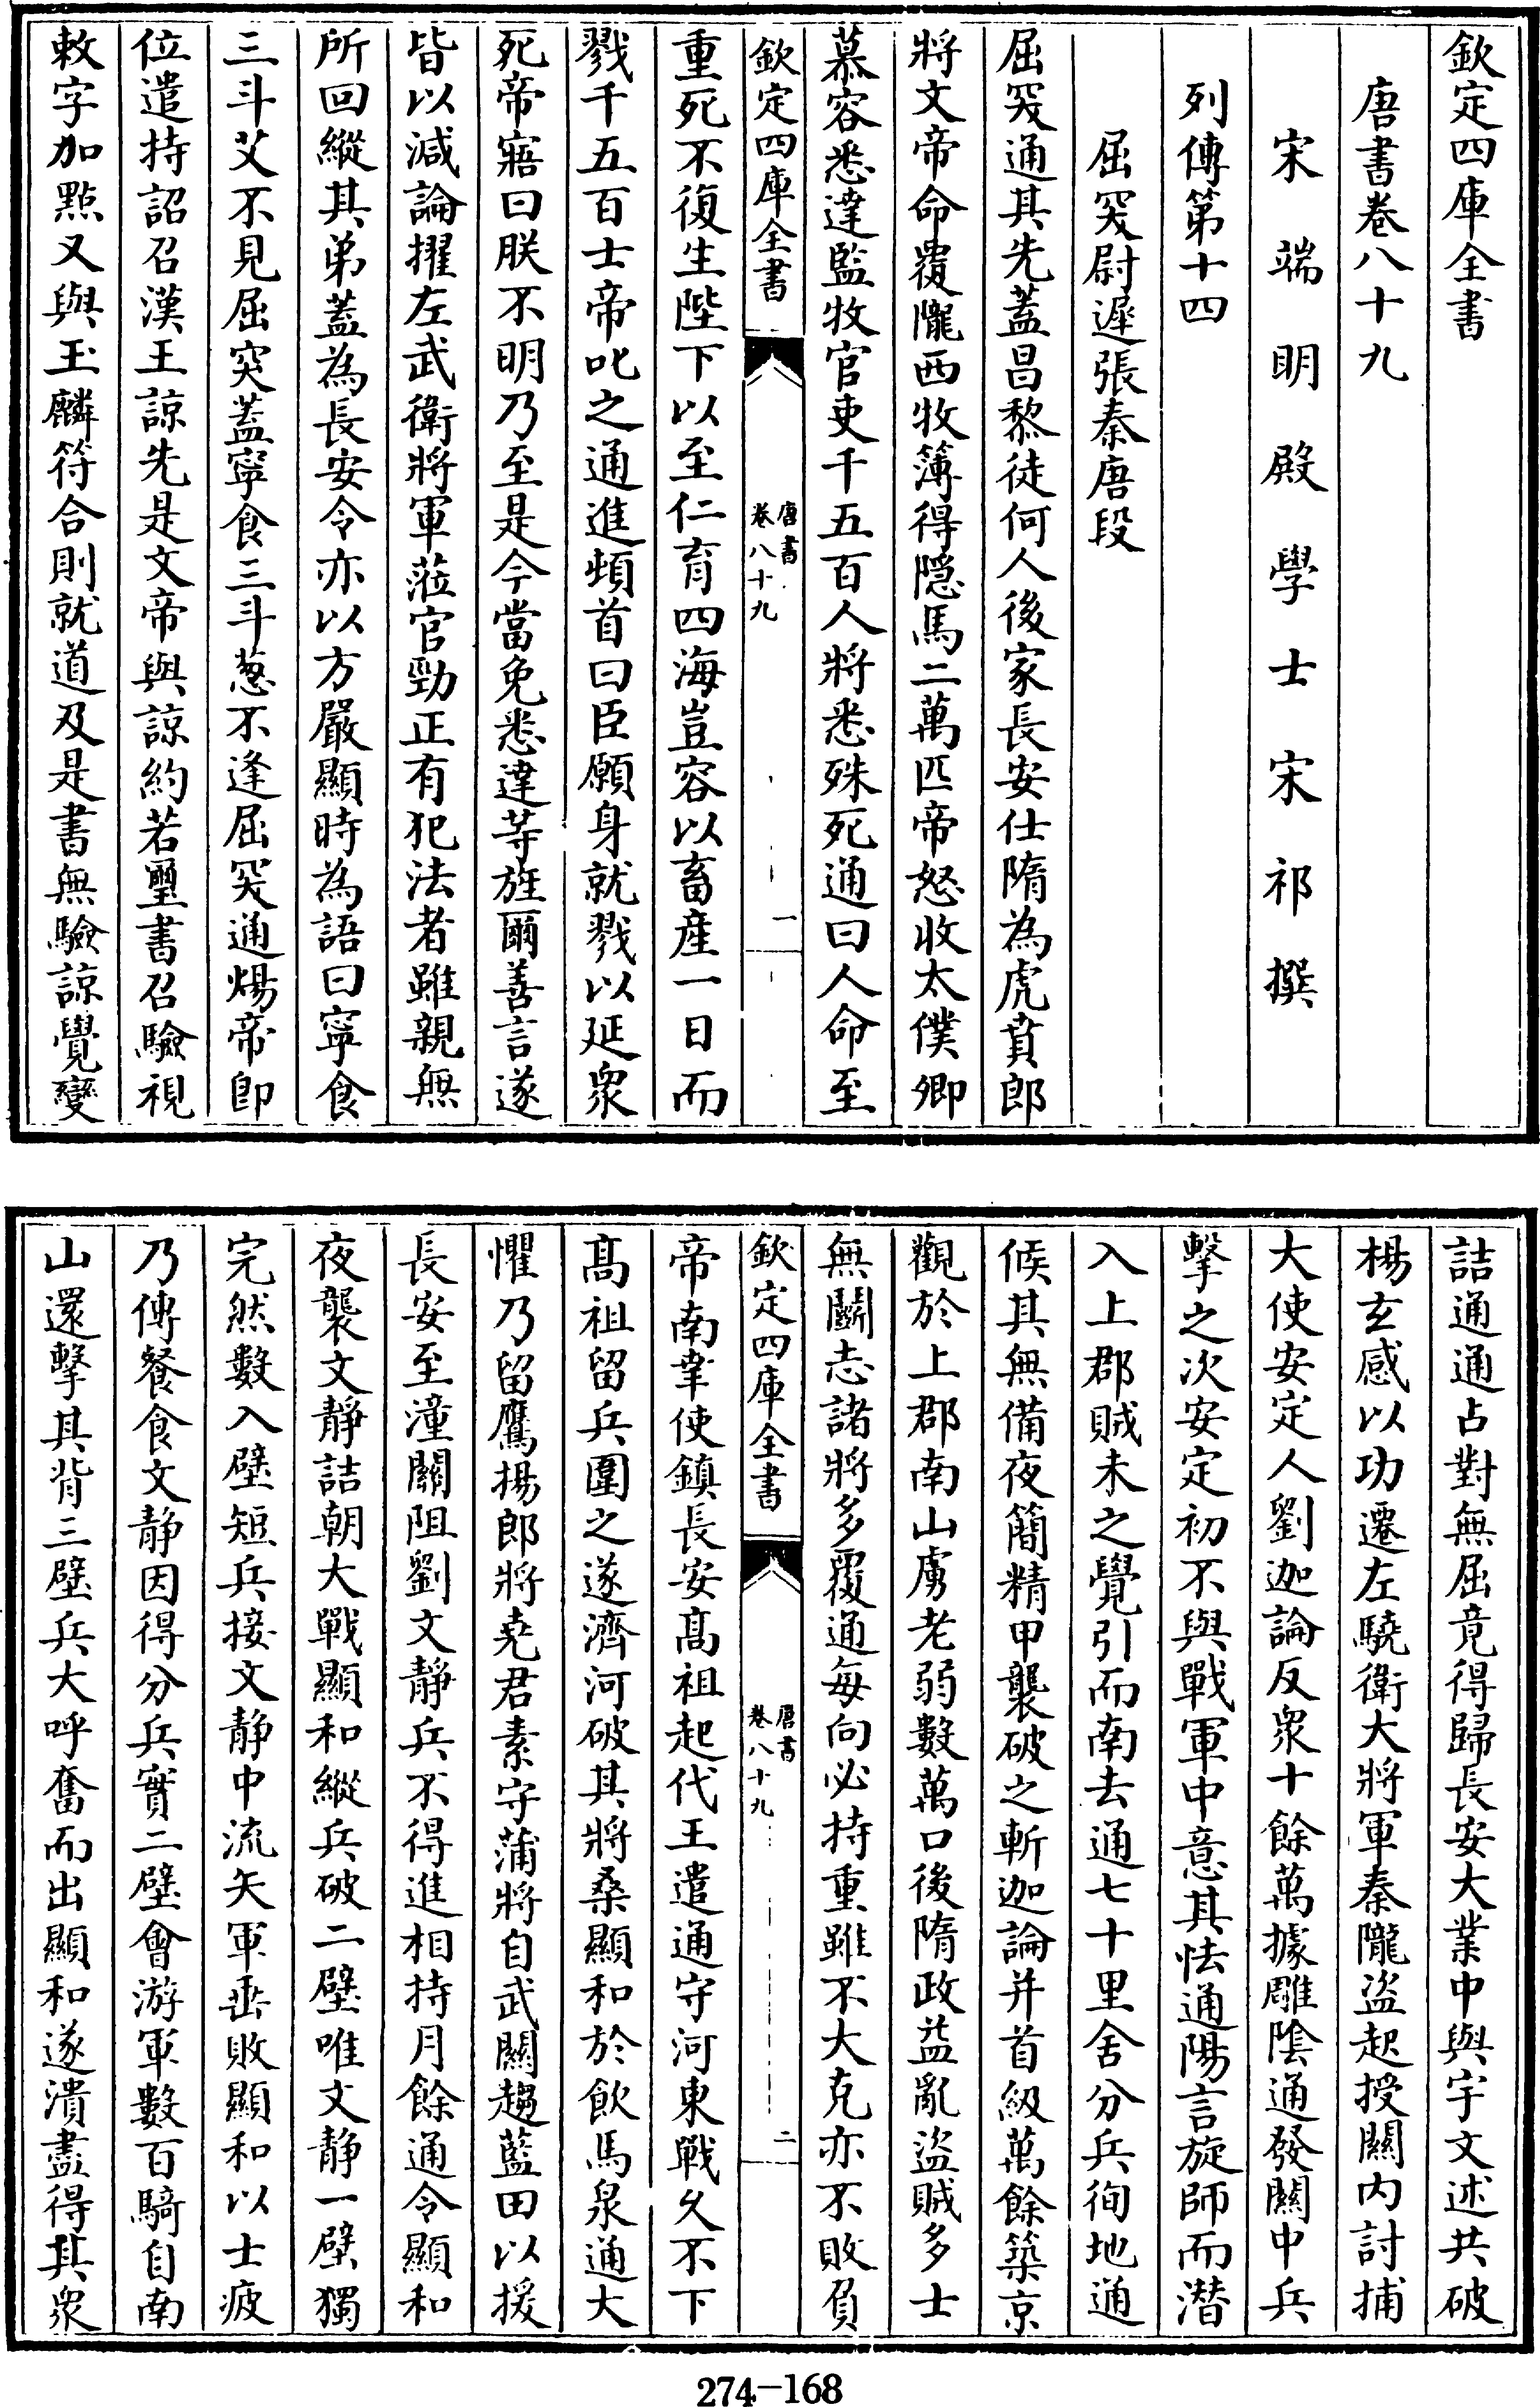 欽定四庫全書
唐書卷八十九
宋端明殿學士宋祁撰
列傳第十四
屈突尉遲張秦唐段
屈突通其先蓋昌黎徒何人後家長安仕隋為虎賁郎
將文帝命覆隴西牧簿得隱馬二萬匹帝怒收太僕卿
慕容悉達監牧官吏千五百人將悉殊死通曰人命至
欽定四庫全書
唐書
卷八十九
一
重死不復生陛下以至仁育四海豈容以畜產一日而
戮千五百士帝叱之通進頓首曰臣願身就戮以延衆
死帝寤曰朕不明乃至是今當免悉達等旌爾善言遂
皆以減論擢左武衛將軍蒞官勁正有犯法者雖親無
所回縱其弟蓋為長安令亦以方嚴顯時為語曰寧食
三斗艾不見屈突蓋寧食三斗葱不逢屈突通煬帝即
位遣持詔召漢王諒先是文帝與諒約若璽書召驗視
敕字加點又與玉麟符合則就道及是書無驗諒覺變
詰通通占對無屈竟得歸長安大業中與宇文述共破
楊玄感以功遷左驍衛大將軍秦隴盜起授關內討捕
大使安定人劉迦論反衆十餘萬據雕陰通發關中兵
擊之次安定初不與戰軍中意其怯通陽言旋師而潛
入上郡賊未之覺引而南去通七十里舍分兵徇地通
候其無備夜簡精甲襲破之斬迦論并首級萬餘築京
觀於上郡南山虜老弱數萬口後隋政益亂盜賊多士
無鬭志諸將多覆通每向必持重雖不大克亦不敗負
欽定四庫全書
唐書
卷八十九
二
帝南幸使鎮長安髙祖起代王遣通守河東戰乆不下
髙祖留兵圍之遂濟河破其將桑顯和於飲馬泉通大
懼乃留鷹揚郎將堯君素守蒲將自武關趨藍田以援
長安至潼關阻劉文靜兵不得進相持月餘通令顯和
夜襲文靜詰朝大戰顯和縱兵破二壁唯文靜一壁獨
完然數入壁短兵接文靜中流矢軍垂敗顯和以士疲
乃傳餐食文靜因得分兵實二壁會游軍數百騎自南
山還擊其背三壁兵大呼奮而出顯和遂潰盡得其衆
274-168